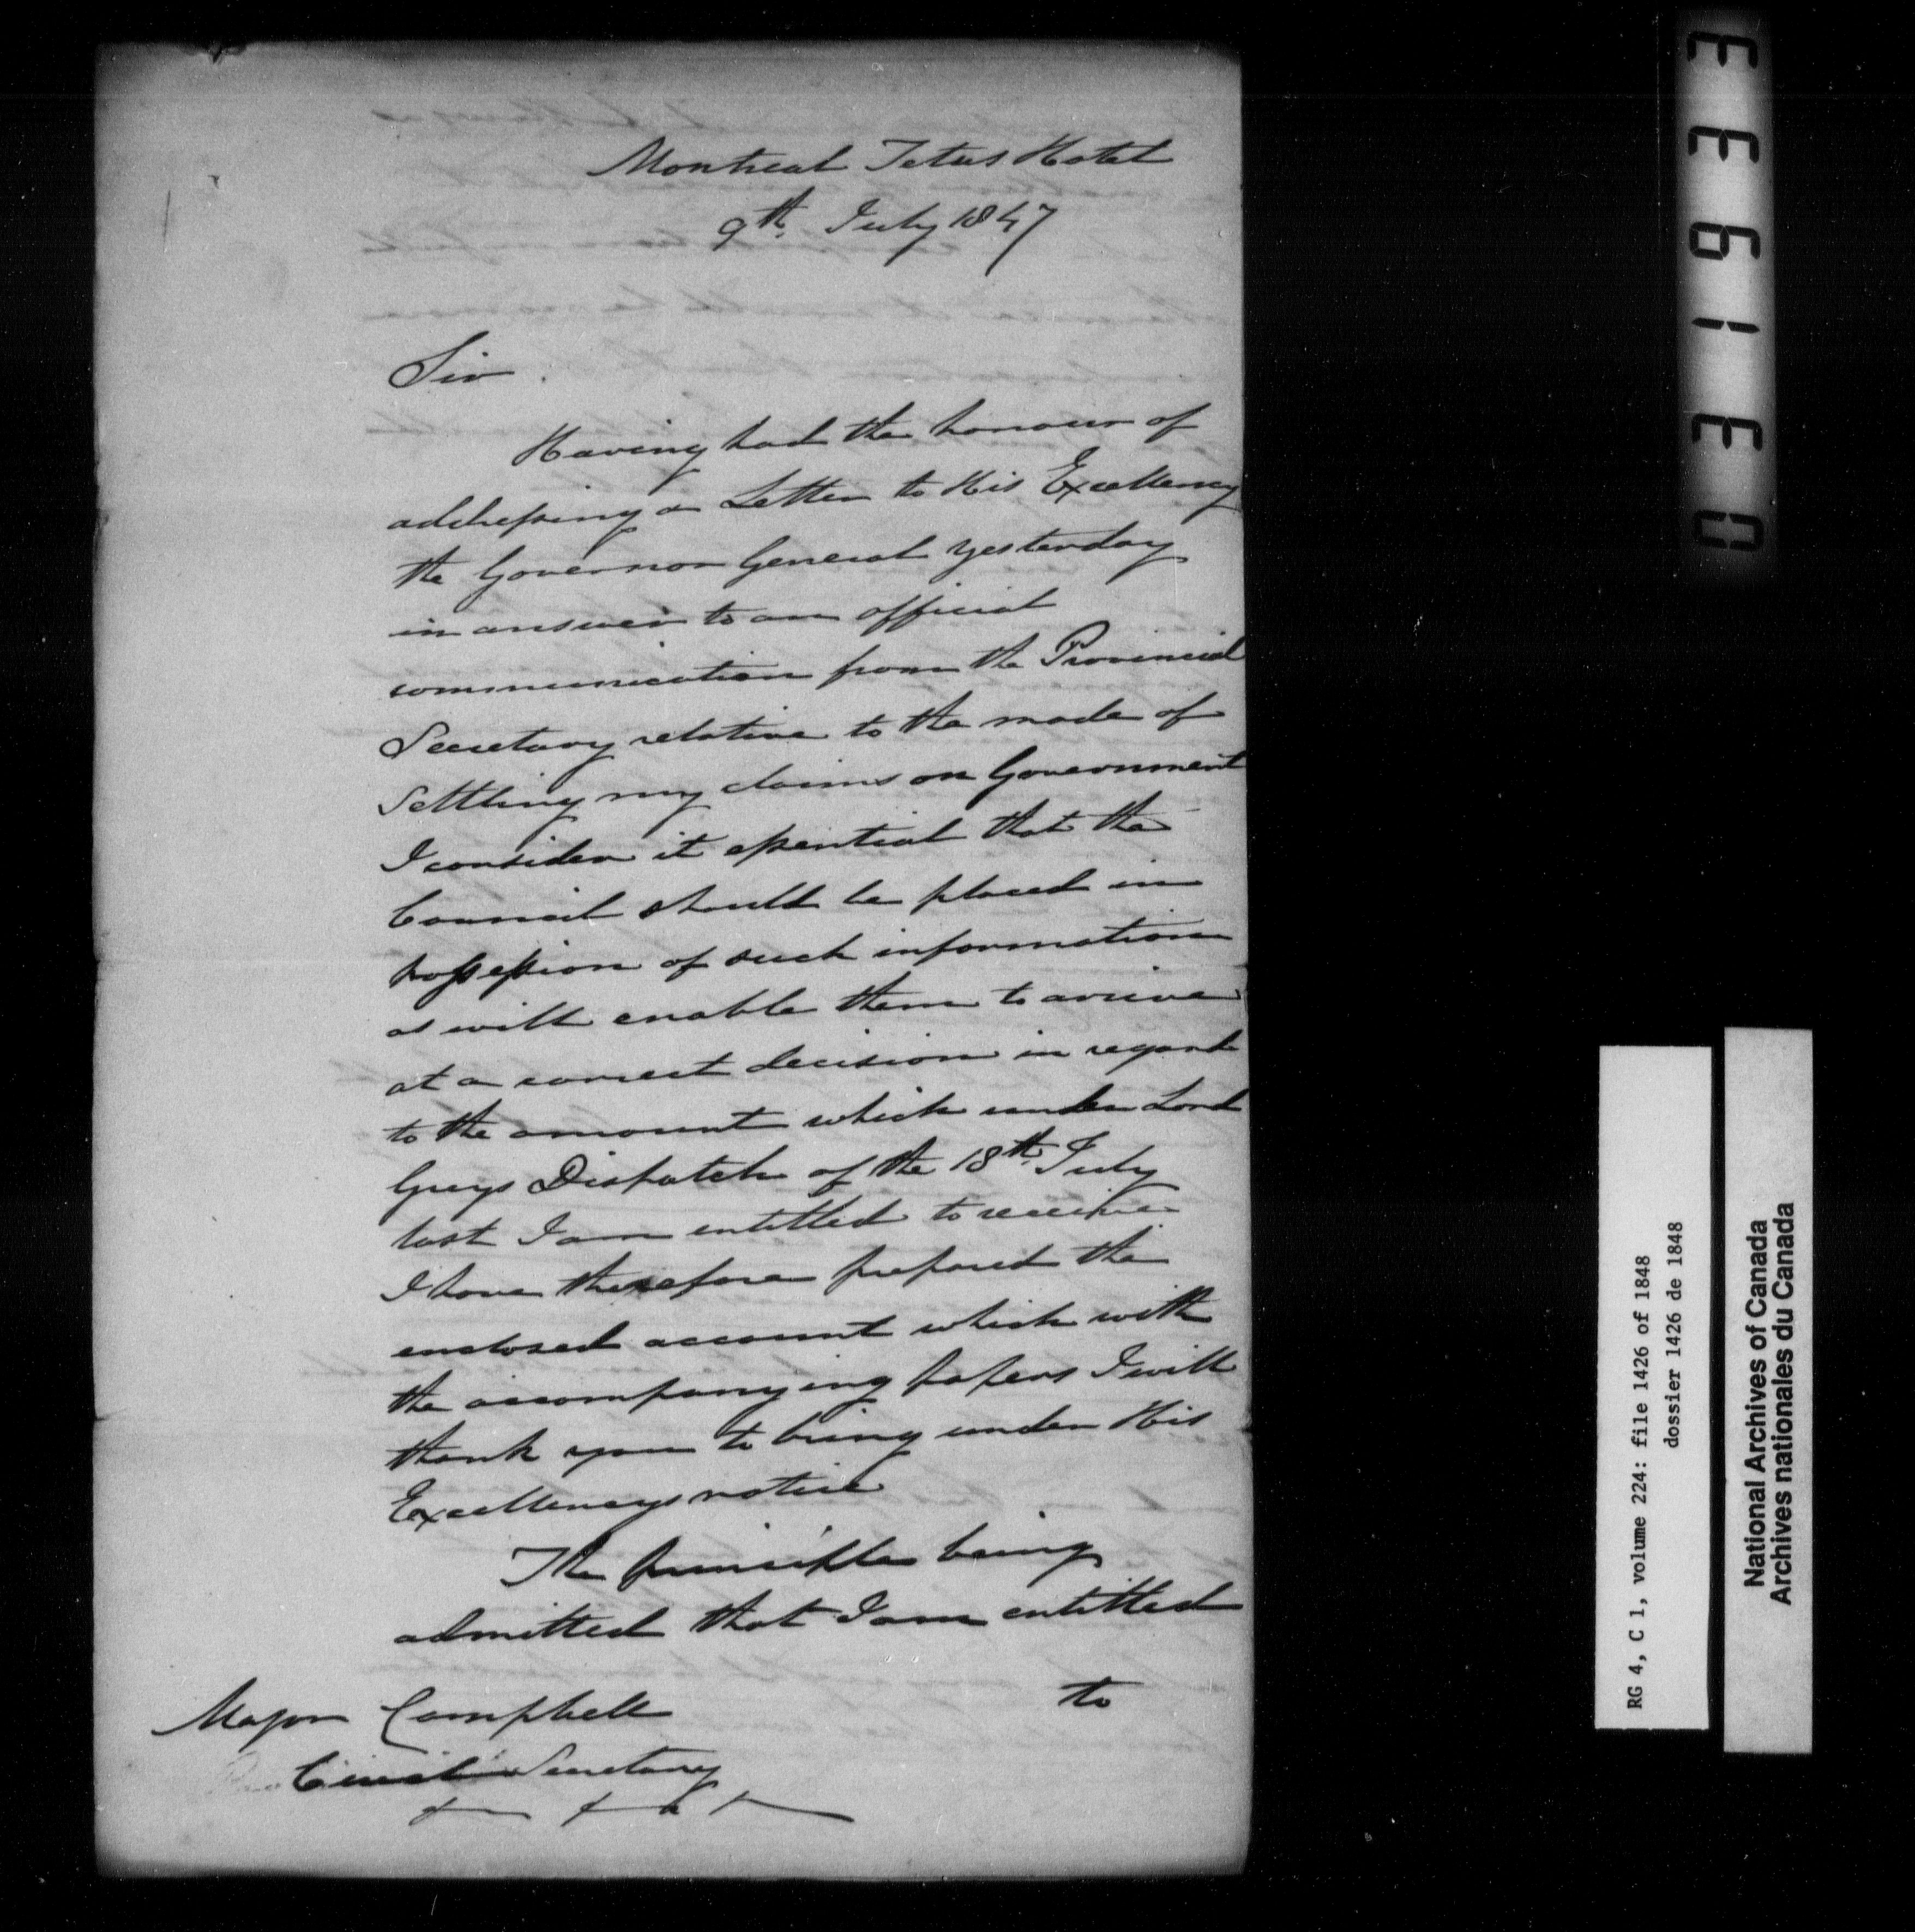 Montreal Tetus Hotel
9th. July 1847
Sir.
Having had the honour of
addressing a Letter to His Excellency
the Governor General yesterday
in answer to an official
communication from the Provincial
Secretary relative to the mode of
Settling my claims on Government
I consider it essential that the
Council should be placed in
possession of such information
as will enable them to arrive
at a correct decision in regard
to the amount which under Lord
Greys Dispatch of the 18th. July
last I am entitled to receive
I have therefore prepared the
enclosed account which with
the accompanying papers I will
thank you to bring under His
Excellencys notice
The principle being
admitted that I am entitled
to
Major Campbell
Civil Secretary
033913 3
RG 4, C 1, volume 224: file 1426 of 1848
dossier 1426 de 1848
National Archives of Canada
Archives nationales du Canada